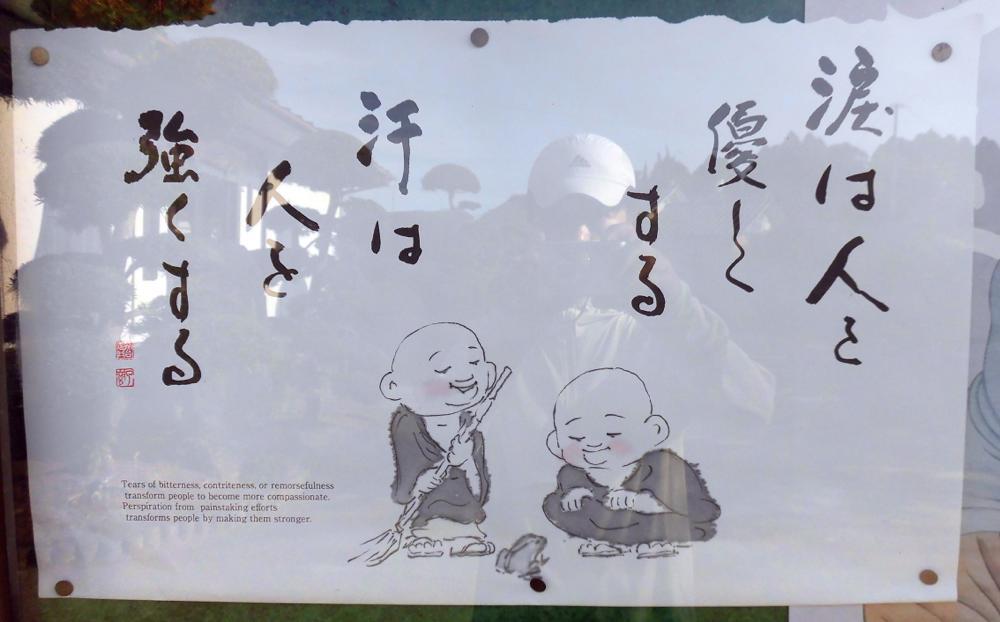 涙は人を
優しく
する
汗は
人を
強くする
Tears of bitterness, contriteness, or remorsefulness
transform people to become more compassionate.
Perspiration from painstaking efforts
transforms people by making them stronger.